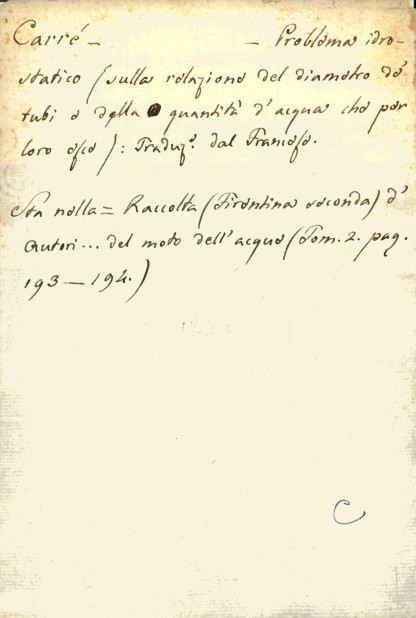 Carré — — Problema idro-
statico (sulla relazione del diametro de'
tubi e della quantità d'acqua che per
loro esce): Traduz.e dal Francese.
Sta nella = Raccolta (Fiorentina seconda) d'
Autori... del moto dell'acque (Tom. 2. pag.
193 — 194.)
C